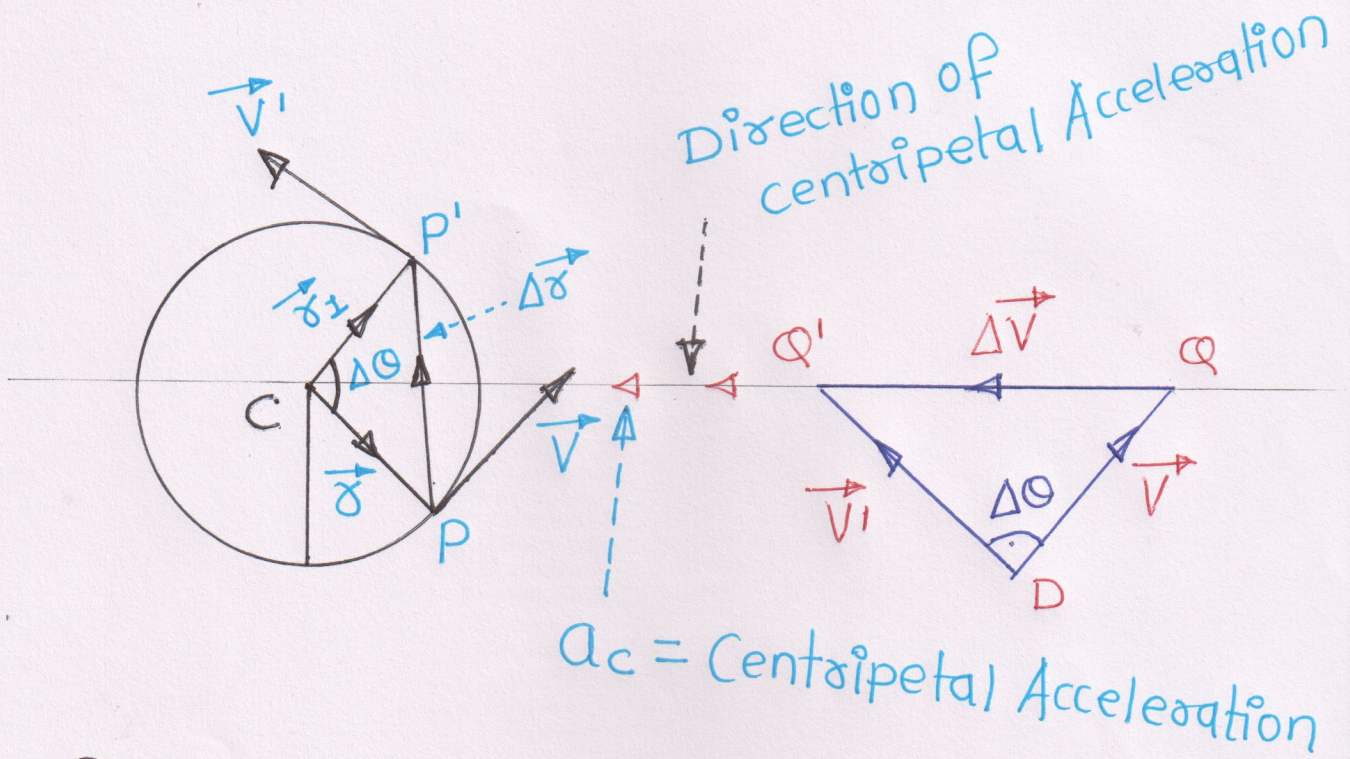 V'
Direction of
centripetal Acceleration
P'
r1
Δr
Δθ
C
r
V
P
Q'
ΔV
Q
V'
Δθ
V
D
ac = Centripetal Acceleration